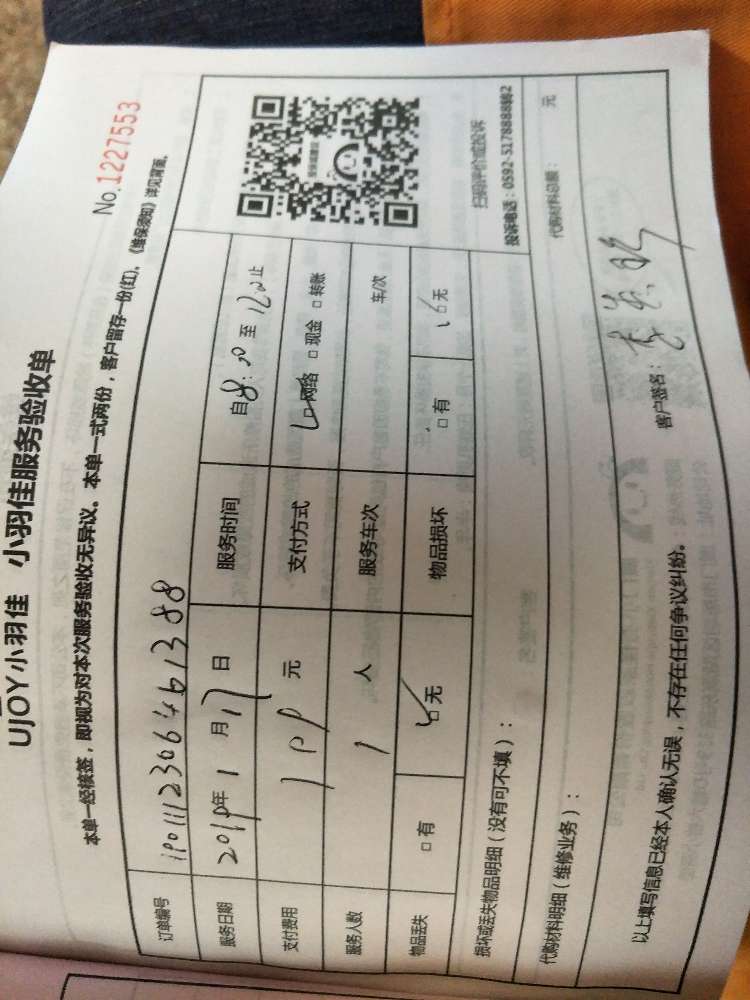 UJOY小羽佳 小羽佳服务验收单
No.1227553
本单一经核签，即视为对本次服务验收无异议。本单一式两份，客户留存一份(红)。《维保须知》详见背面。
订单编号 190111230646 1388
服务日期 2019年 1 月 17 日 服务时间 自8:30 至 12:00止
支付费用 199 元 支付方式 □网络 □现金 □转账
服务人数 1 人 服务车次 车/次
物品丢失 □有 □无 物品损坏 □有 □无
扫码评价或投诉
投诉电话：0592-5178888转2
损坏或丢失物品明细（没有可不填）：
代购材料明细（维修业务）： 代购材料总额： 元
以上填写信息已经本人确认无误，不存在任何争议纠纷。 客户签名：